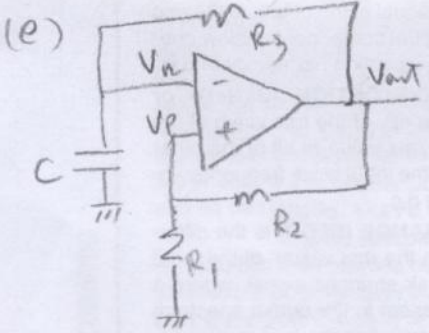 (e)
R3
Vn
Vout
-
Vp
+
C
R2
R1